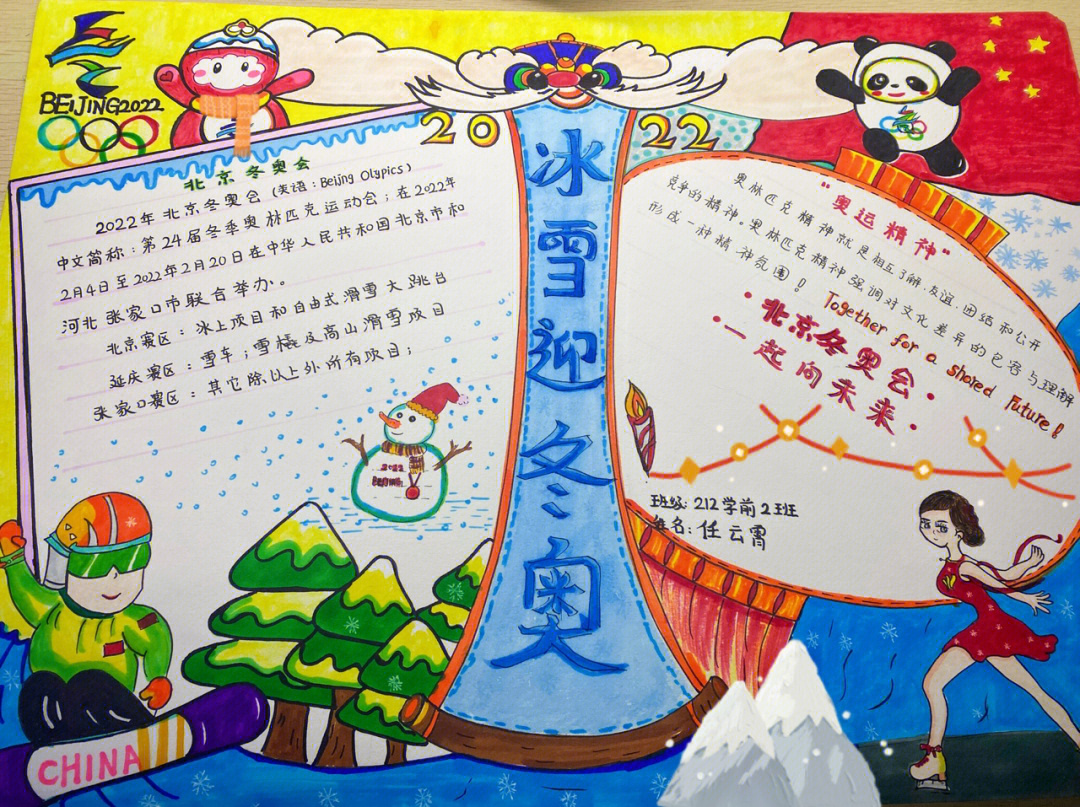 BEIJING2022
2022
冰雪迎冬奥
北京冬奥会
2022年北京冬奥会(英语:Beijing Olypics)
中文简称:第24届冬季奥林匹克运动会;在2022年
2月4日至2022年2月20日在中华人民共和国北京市和
河北张家口市联合举办。
北京赛区:冰上项目和自由式滑雪大跳台
延庆赛区:雪车;雪橇及高山滑雪项目
张家口赛区:其它除以上外所有项目;
2022
BEIJING
CHINA
"奥运精神"
奥林匹克精神就是相互了解、友谊、团结和公开
竞争的精神。奥林匹克精神强调对文化差异的包容与理解
形成一种精神氛围!
Together for a shared Future!
·北京冬奥会·
·一起向未来·
班级:212学前2班
姓名:任云霄